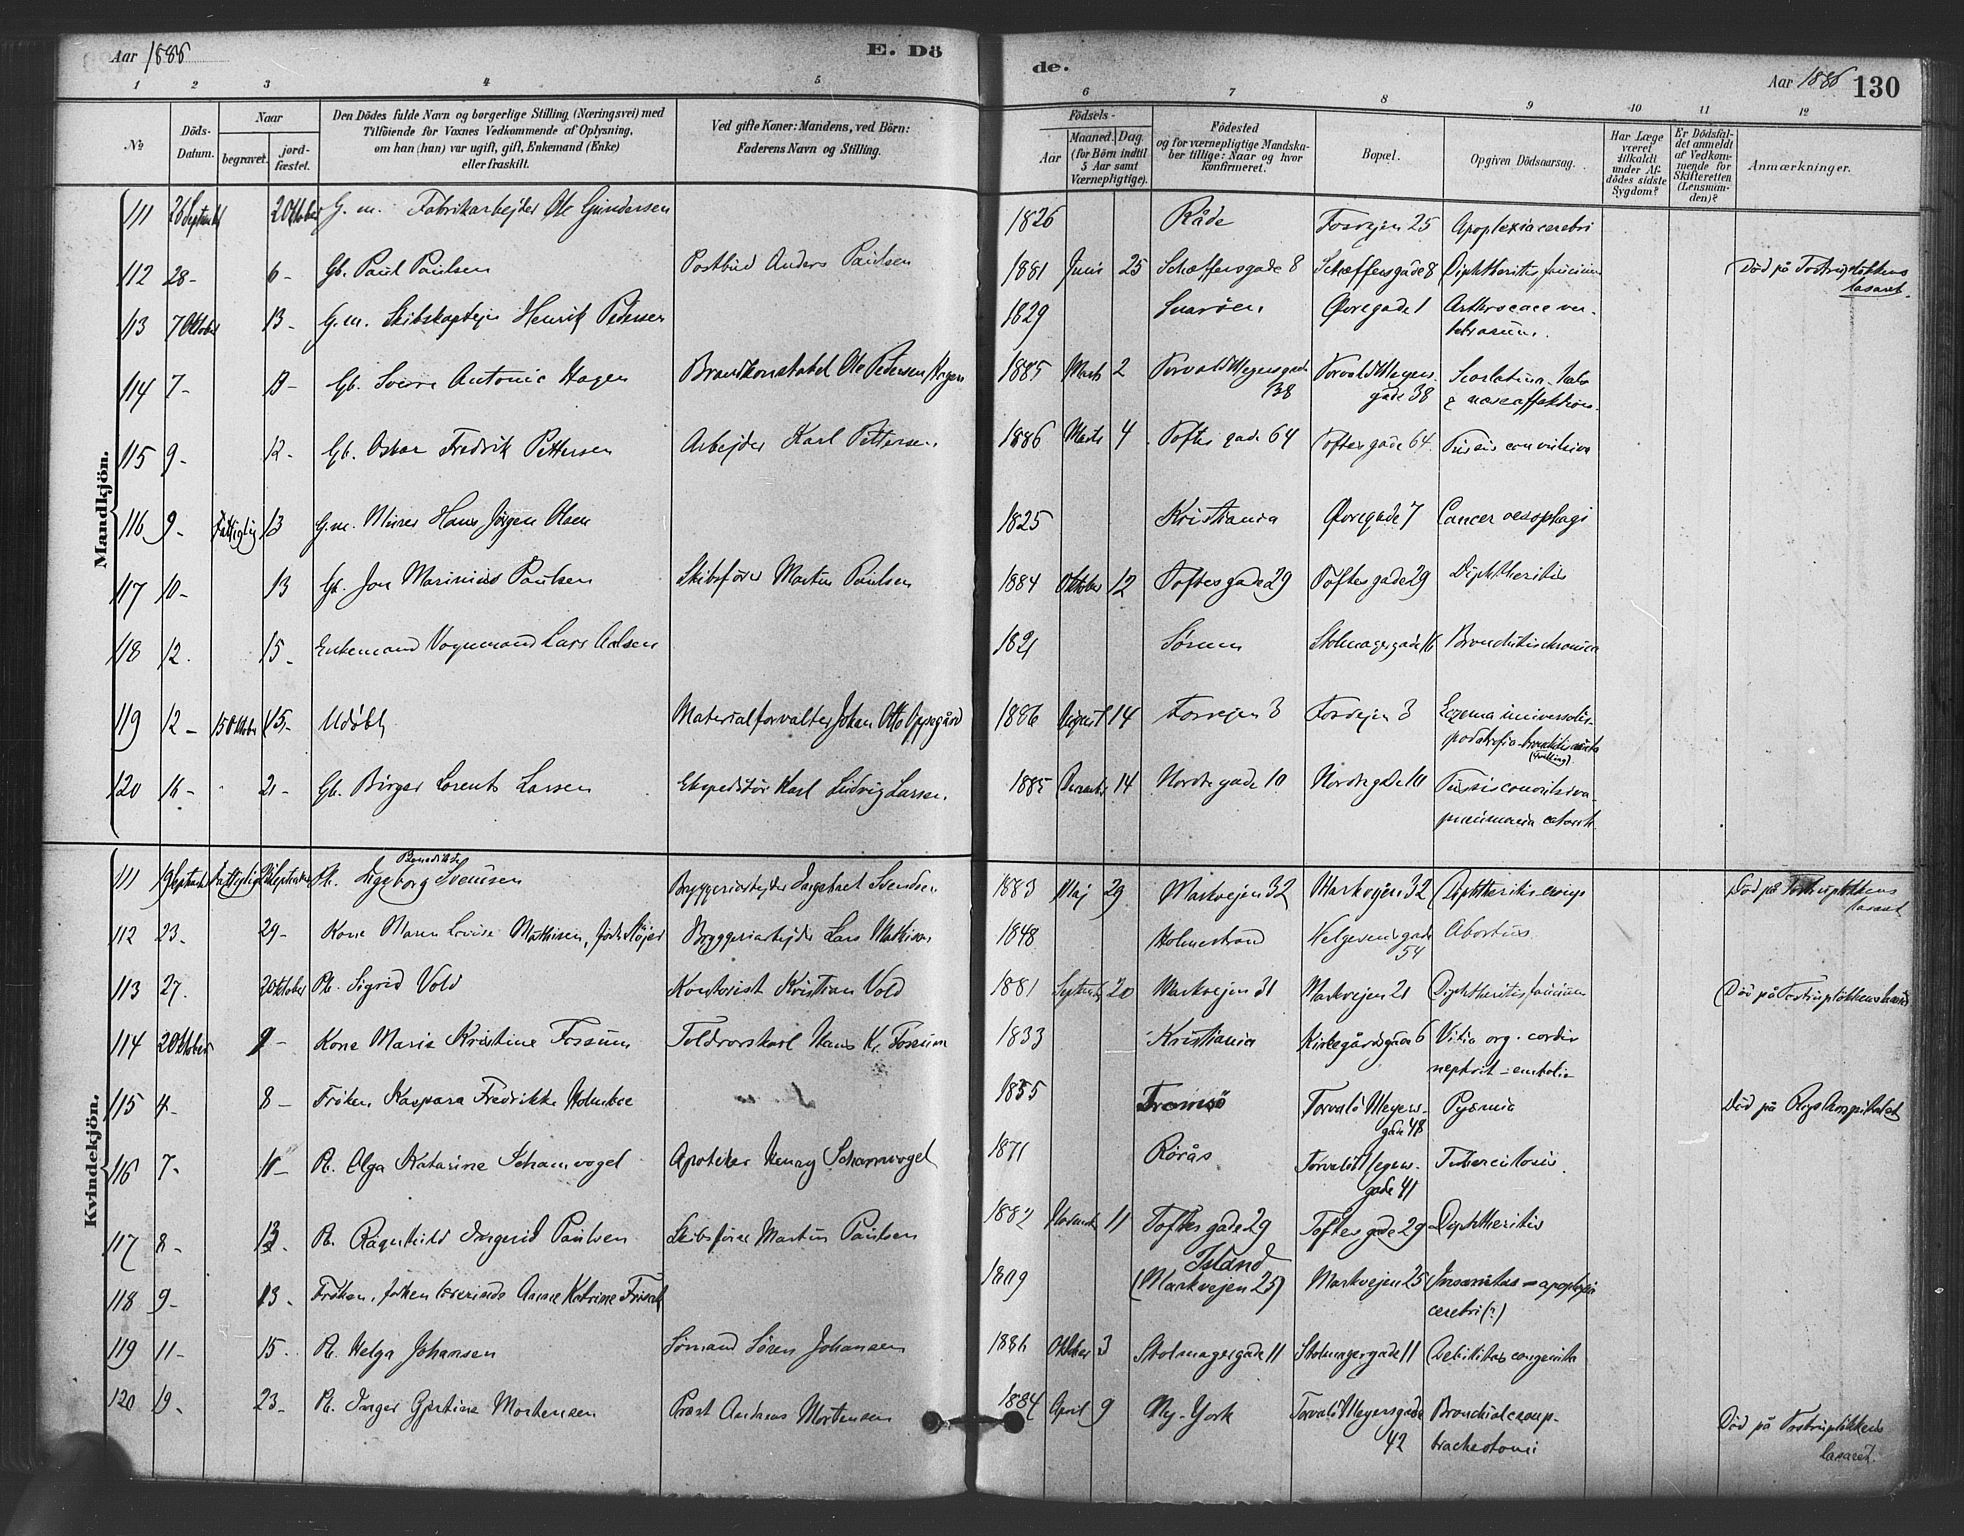 Aar 1886 E. Dö
de. Aar 1886 130
1 2 3 4 5 6 7 8 9 10 11 12
No
Döds-Datum.
Naar
begravet.
jord-fæstet.
Den Dödes fulde Navn og borgerlige Stilling (Næringsvei) med
Tilföiende for Voxnes Vedkommende af Oplysning,
om han (hun) var ugift, gift, Enkemand (Enke)
eller fraskilt.
Ved gifte Koner: Mandens, ved Börn:
Faderens Navn og Stilling.
Födsels-
Aar
Maaned. Dag.
(for Börn indtil
5 Aar samt
Værnepligtige).
Födested
og for værnepligtige Mandskaber tillige: Naar og hvor
konfirmeret.
Bopæl.
Opgiven Dödsaarsag.
Har Læge
været
tilkaldt
under Afdödes sidste
Sygdom?
Er Dödsfaldet anmeldt
af Vedkommende for
Skifteretten
(Lensmanden)?
Anmærkninger.
Mandkjön.
111 26 Septembr 2 Oktober G. m. Fabrikarbejder Ole Gundersen 1826 Råde Fosvejen 25 Apoplexia cerebri
112 28- 6- Gb. Paul Paulsen Postbud Anders Paulsen 1881 Juni 25 Schæffersgade 8 Schæffersgade 8 Diphtheritis faucium Död på Tostrupløkkens
lasaret.
113 7 Oktober 13- G. m. Skibskaptejn Henrik Pedersen 1829 Snarøen Øvregade 1 Arthrocace ver-
tebrarum.
114 7- 13- Gb. Sverre Antonie Hagen Brandkonstabel Ole Pedersen Hagen 1885 Marts 2 Torvald Meyersgade
38 Torvald Meyers-
gade 38 Scarlatina-hals
& næseaffektion.
115 9- 12- Gb. Oskar Fredrik Pettersen Arbejder Karl Pettersen. 1886 Marts 4 Toftesgade 64 Toftesgade 64. Tussis convulsiva
116 9- Fattiglig 13 G. m. Murer Hans Jørgen Olsen 1825 Kristiania Øvregade 7 Cancer oesophagi
117 10- 13 Gb. Jon Marinius Paulsen Skibsfører Martin Paulsen 1884 Oktober 12 Toftesgade 29 Toftesgade 29 Diphtheritis
118 12. 15- Enkemand Vognmand Lars 1821 Sørum Stolmagergade 16 Bronchitis chronica
119 12- 15 Oktober 15- Udøbt Materialforvalter Johan Otto Oppegård 1886 August 14 Fosvejen 3 Fosvejen 3 Eczema universalis-
pædatrofia-bronchitis acuta
(Tvilling)
120 16- 21- Gb. Birger Lorents Larsen Ekspeditør Karl Ludvig Larsen. 1885 December 14 Nordregade 10 Nordregade 10 Tussis convulsiva-
pneumonia catarrh.
Kvindekjön.
111 19 Septbr Fattiglig September Pb. Ingeborg Benedikte Svensen Bryggeriarbejder Svendsen 1883 Maj 29 Markvejen 32 Markvejen 32 Diphtheritis croup Död på Tostrupløkkens
lasaret
112 23- 29- Kone Maren Lovise Mathisen, født Bryggeriarbejder Lars Mathisen 1848 Holmestrand Helgesensgade
54 Abortus.
113 27. 2 Oktober Pb. Sigrid Vold Kontorist Kristian Vold 1881 Septembr 20 Markvejen 31 Markvejen 21 Diphtheritis faucium Död på Tostrupløkkens lasaret
114 2 Oktober 9- Kone Marie Kristine Fossum Toldrorskarl Hans Kr. Fossum 1833 Kristiania Kirkegårdsgade 6 Vitia org. cordis
nephrit-embolie
115 4- 8- Frøken Kaspara Fredrikke Holmboe 1855 Tromsø Torvald Meyers-
gade 48 Pyæmia Död på Rigshospitalet
116 7- 11- Pb. Olga Katarine Scharnvogel Apoteker Henry Scharnvogel 1871 Rørås Torvald Meyers-
gade 41 Tuberculosis.
117 8- 13. Pb. Ragnhild Ingerid Paulsen Skibsfører Martin Paulsen 1882 November 11 Toftesgade 29 Toftesgade 29 Diphtheritis
118 9- 13- Frøken, Anne Katrine 1819 Island
(Markvejen 25) Markvejen 25 Insanitas - apoplexia
cerebri (?)
119 11- 15- Pb. Helga Johansen Sømand Søren Johansen 1886 Oktober 3 Stolmagergade 11 Stolmagergade 11 Debilitas congenita
120 19- 23- Pb. Inger Gjertine Mortensen Prest Andreas Mortensen 1884 April 9 Ny-York Torvald Meyersgade
42 Bronchialcroup-
tracheotomi Död på Tostrupløkkens
lasaret.